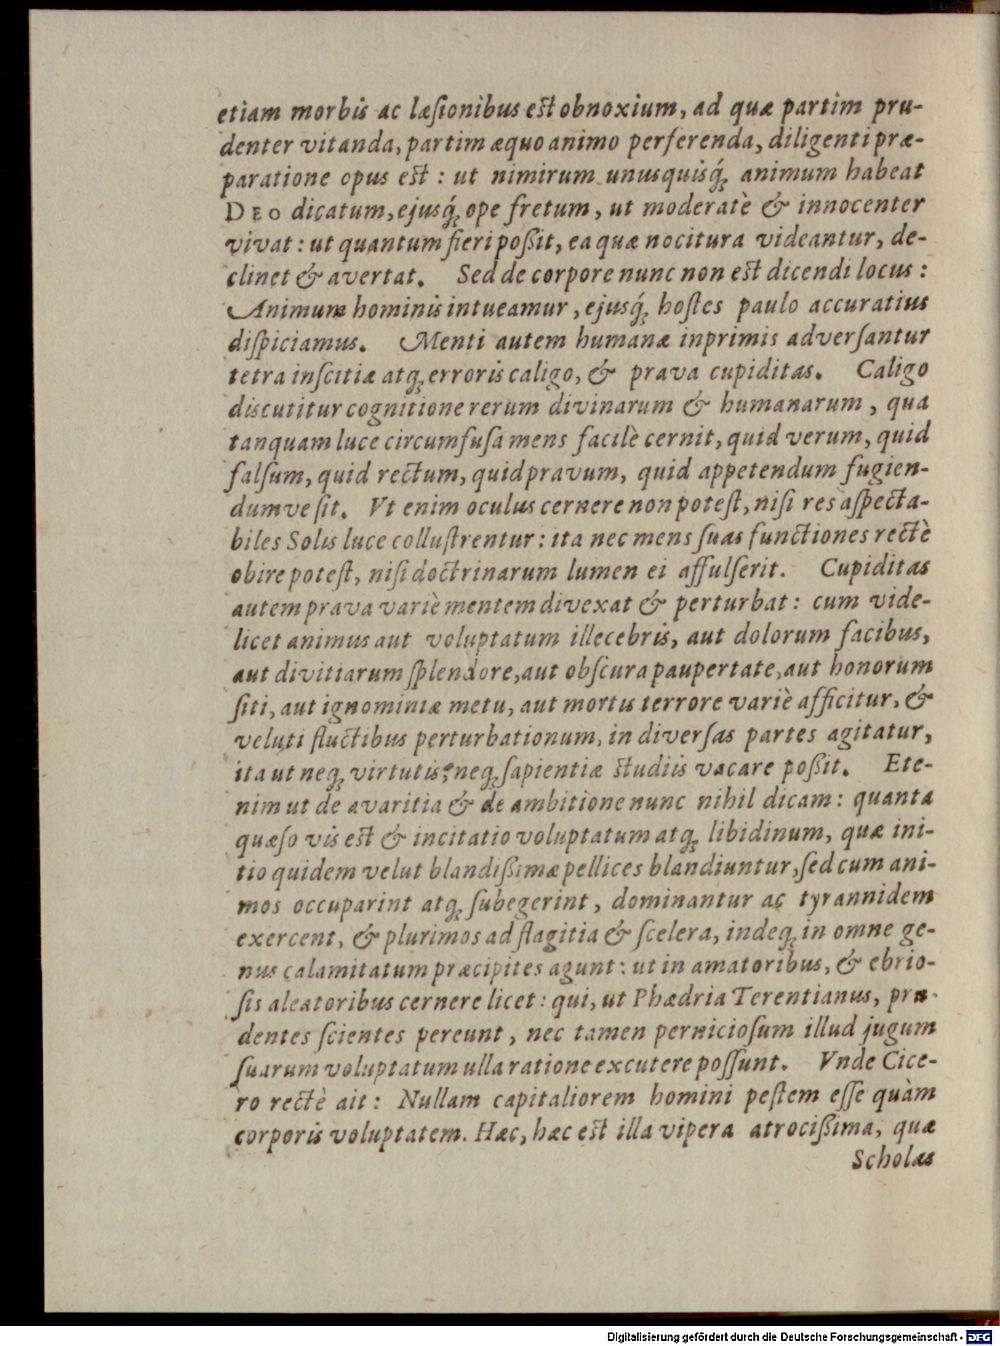 etiam morbis ac læſionibus eſt obnoxium, ad quæ partim pru-
denter vitanda, partim æquo animo perferenda, diligenti præ-
paratione opus eſt : ut nimirum unusquisq́ꝫ animum habeat
DEO dicatum, ejusq́ꝫ ope fretum, ut moderatè & innocenter
vivat : ut quantum fieri poßit, ea quæ nocitura videantur, de-
clinet & avertat. Sed de corpore nunc non eſt dicendi locus :
Animum hominis intueamur, ejusq́ꝫ hoſtes paulo accuratius
diſpiciamus. Menti autem humanæ inprimis adverſantur
tetra inſcitiæ atqꝫ erroris caligo, & prava cupiditas. Caligo
discutitur cognitione rerum divinarum & humanarum, qua
tanquam luce circumfuſa mens facilè cernit, quid verum, quid
falſum, quid rectum, quid pravum, quid appetendum fugien-
dumve ſit. Vt enim oculus cernere non poteſt, niſi res aſpecta-
biles Solis luce colluſtrentur : ita nec mens ſuas functiones rectè
obire poteſt, niſi doctrinarum lumen ei affulſerit. Cupiditas
autem prava variè mentem divexat & perturbat : cum vide-
licet animus aut voluptatum illecebris, aut dolorum facibus,
aut divitiarum ſplendore, aut obſcura paupertate, aut honorum
ſiti, aut ignominiæ metu, aut mortis terrore variè afficitur, &
veluti fluctibus perturbationum, in diverſas partes agitatur,
ita ut neqꝫ virtutis, neqꝫ ſapientiæ ſtudiis vacare poßit. Ete-
nim ut de avaritia & de ambitione nunc nihil dicam : quanta
quæſo vis eſt & incitatio voluptatum atqꝫ libidinum, quæ ini-
tio quidem velut blandißimæ pellices blandiuntur, ſed cum ani-
mos occuparint atqꝫ ſubegerint, dominantur ac tyrannidem
exercent, & plurimos ad flagitia & ſcelera, indeqꝫ in omne ge-
nus calamitatum præcipites agunt : ut in amatoribus, & ebrio-
ſis aleatoribus cernere licet : qui, ut Phædria Terentianus, pru-
dentes ſcientes pereunt, nec tamen pernicioſum illud jugum
ſuarum voluptatum ulla ratione excutere poſſunt. Vnde Cice-
ro rectè ait : Nullam capitaliorem homini peſtem eſſe quàm
corporis voluptatem. Hæc, hæc eſt illa vipera atrocißima, quæ
Scholas
Digitalisierung gefördert durch die Deutsche Forschungsgemeinschaft - DFG